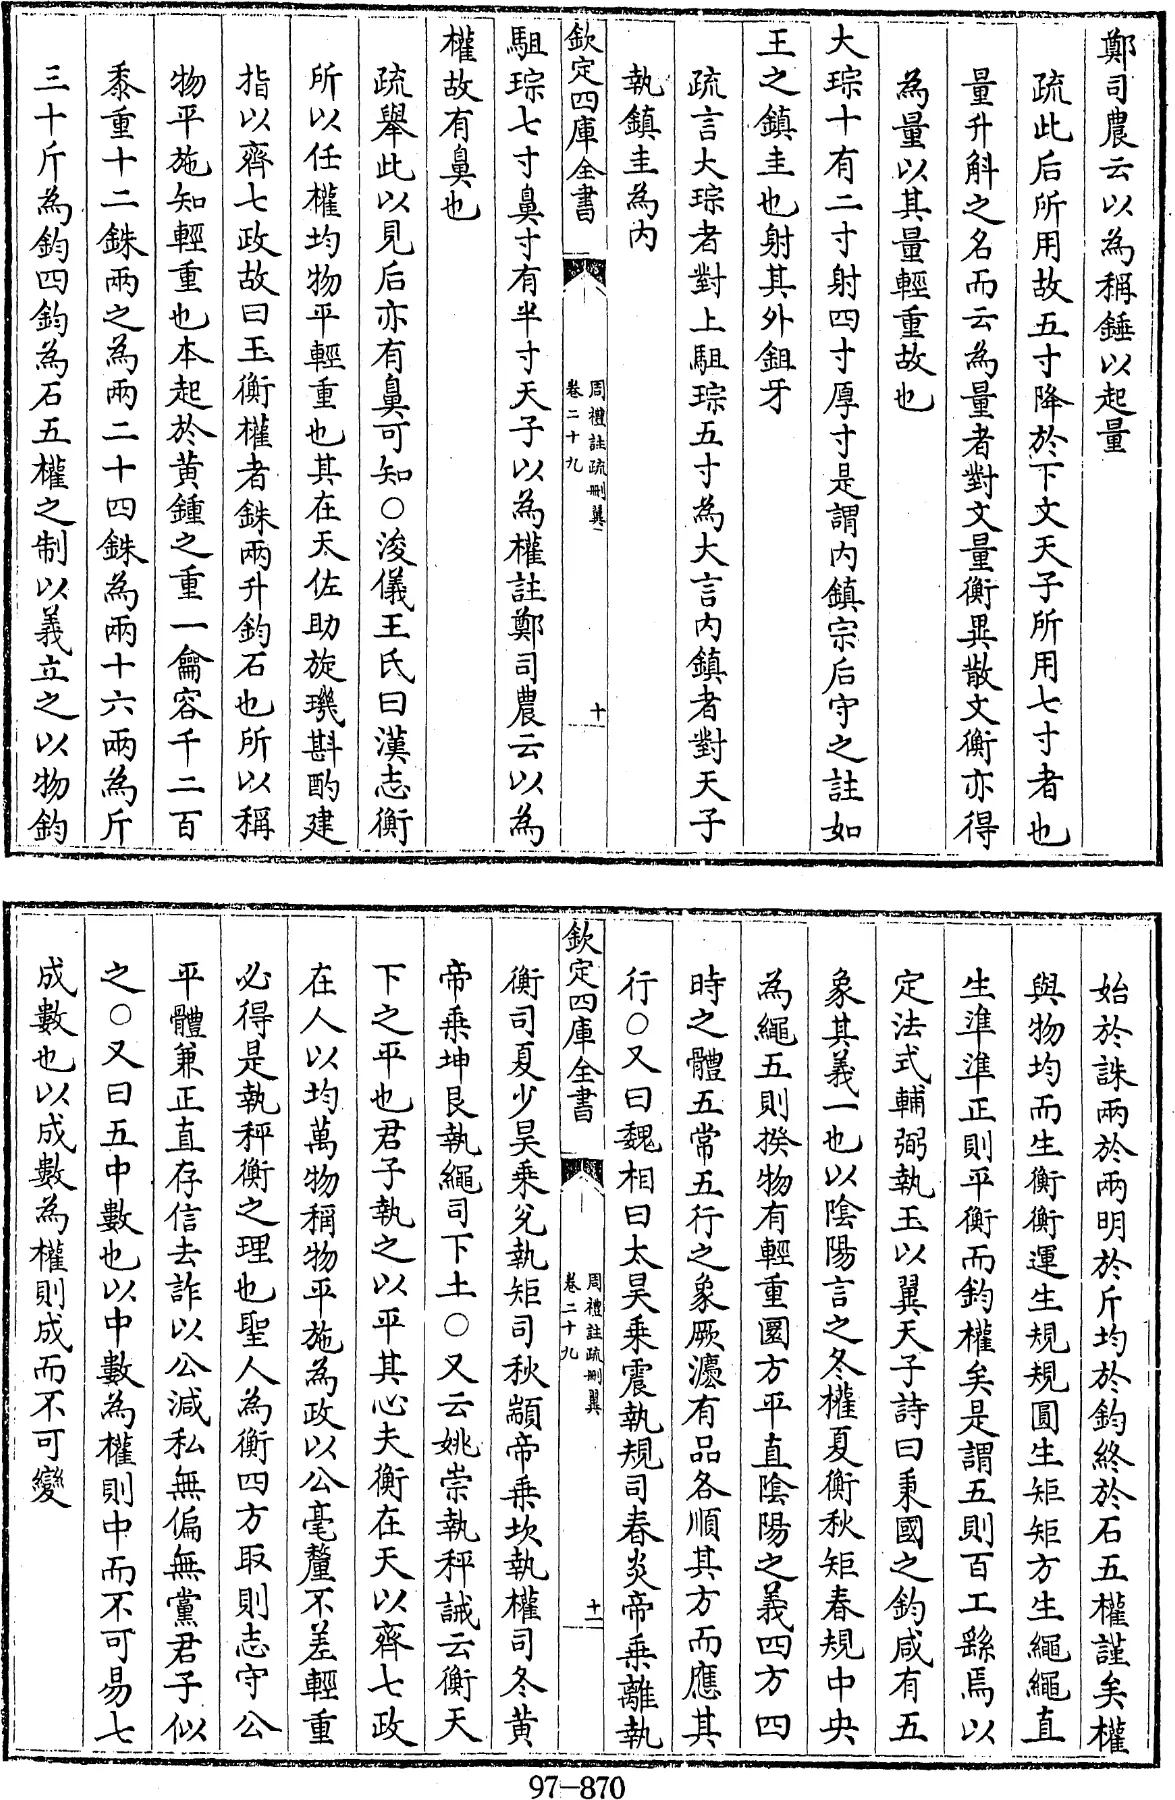 鄭司農云以為稱錘以起量
疏此后所用故五寸降於下文天子所用七寸者也
量升斛之名而云為量者對文量衡異散文衡亦得
為量以其量輕重故也
大琮十有二寸射四寸厚寸是謂内鎮宗后守之註如
王之鎮圭也射其外鉏牙
疏言大琮者對上駔琮五寸為大言内鎮者對天子
執鎮圭為内
欽定四庫全書
周禮註疏刪翼
卷二十九
十
駔琮七寸鼻寸有半寸天子以為權註鄭司農云以為
權故有鼻也
疏舉此以見后亦有鼻可知○浚儀王氏曰漢志衡
所以任權均物平輕重也其在天佐助旋璣斟酌建
指以齊七政故曰玉衡權者銖兩升鈞石也所以稱
物平施知輕重也本起於黄鍾之重一龠容千二百
黍重十二銖兩之為兩二十四銖為兩十六兩為斤
三十斤為鈞四鈞為石五權之制以義立之以物鈞
始於誅兩於兩明於斤均於鈞終於石五權謹矣權
與物均而生衡衡運生規規圓生矩矩方生繩繩直
生準準正則平衡而鈞權矣是謂五則百工繇焉以
定法式輔弼執玉以翼天子詩曰秉國之鈞咸有五
象其義一也以陰陽言之冬權夏衡秋矩春規中央
為繩五則揆物有輕重圜方平直陰陽之義四方四
時之體五常五行之象厥灋有品各順其方而應其
行○又曰魏相曰太昊乘震執規司春炎帝乘離執
欽定四庫全書
周禮註疏刪翼
卷二十九
十一
衡司夏少昊乘兌執矩司秋顓帝乘坎執權司冬黄
帝乘坤艮執繩司下土○又云姚崇執秤誡云衡天
下之平也君子執之以平其心夫衡在天以齊七政
在人以均萬物稱物平施為政以公毫釐不差輕重
必得是執秤衡之理也聖人為衡四方取則志守公
平體兼正直存信去詐以公減私無偏無黨君子似
之○又曰五中數也以中數為權則中而不可易七
成數也以成數為權則成而不可變
97-870